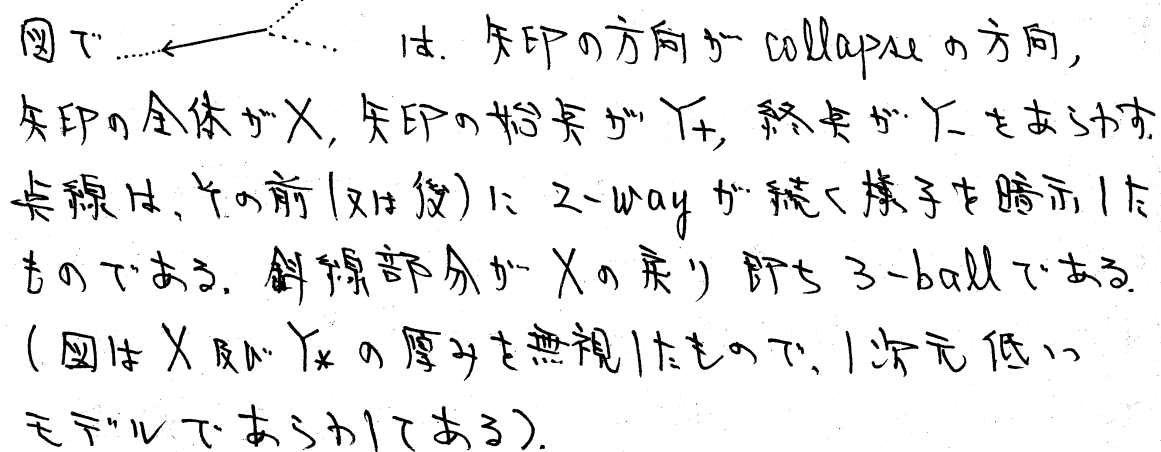 図で は. 矢印の方向が collapse の方向,
矢印の全体が X, 矢印の始点が Y+, 終点が Y- をあらわす.
点線は、その前(又は後)に 2-way が続く様子を暗示した
ものである. 斜線部分が X の残り 即ち 3-ball である.
(図は X 及び Y* の厚みを無視したもので、1次元低い
モデルであらわしてある).